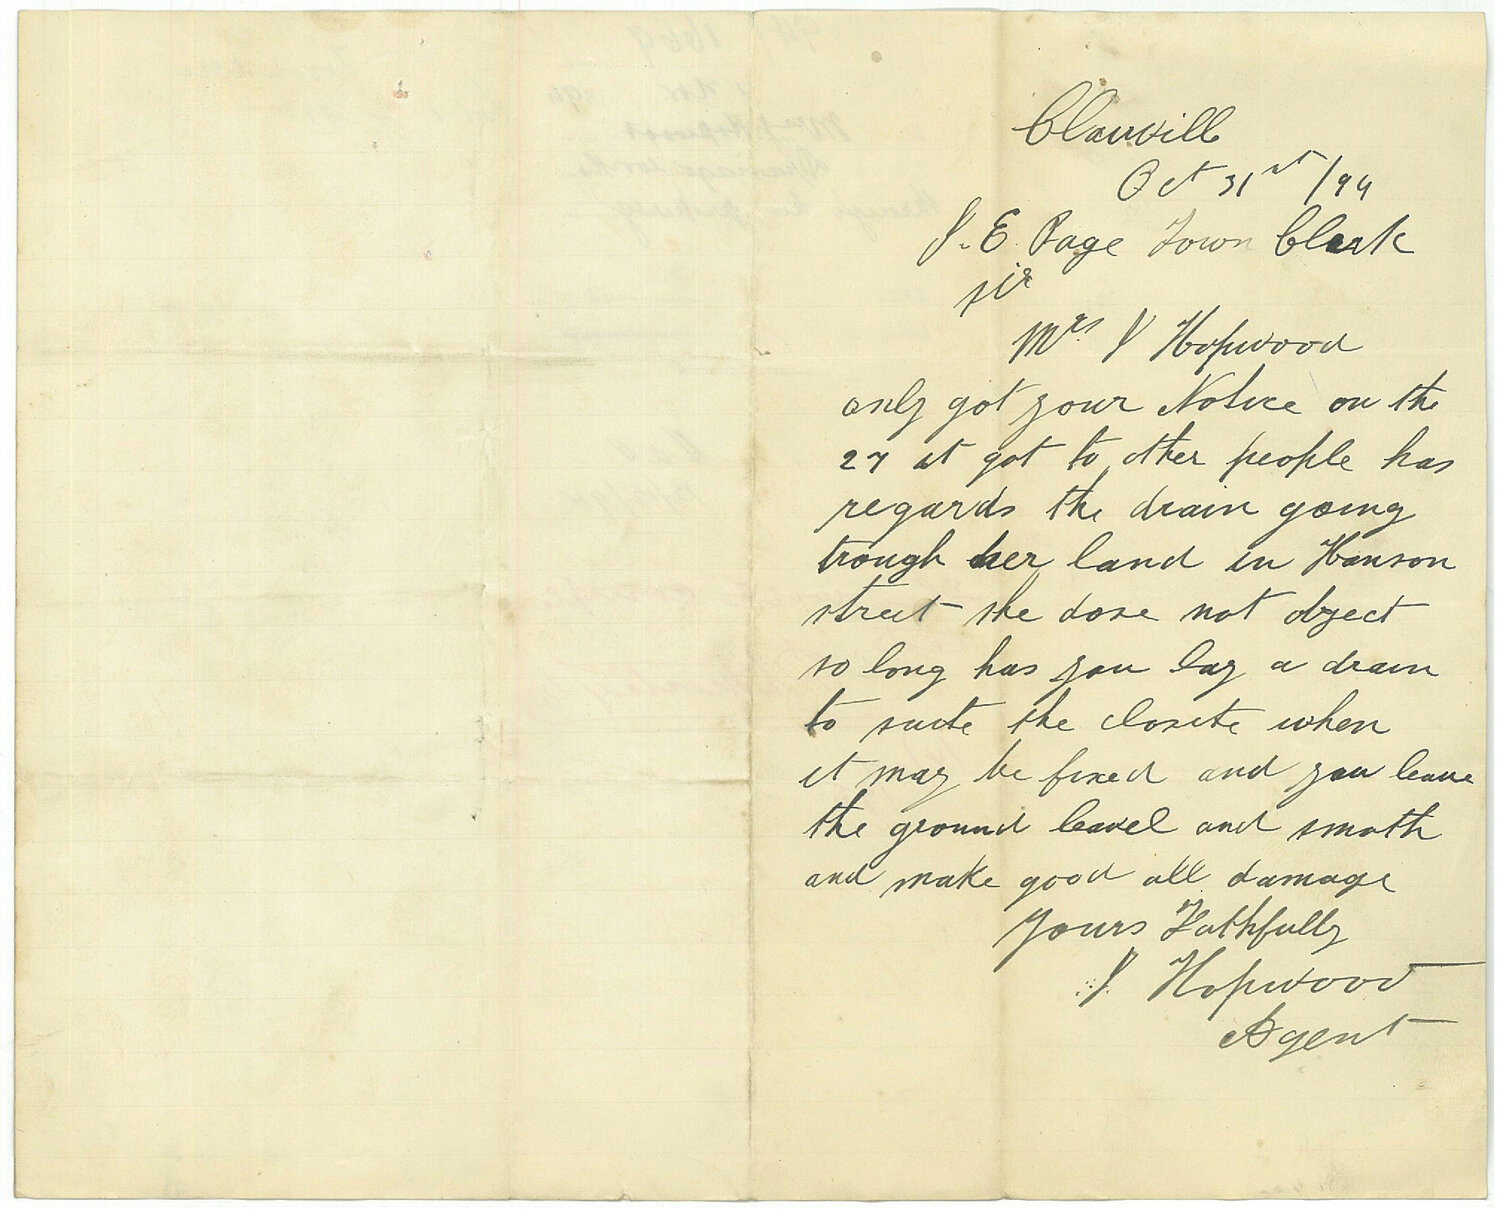 Clanvill
Oct 31st /94
J. E. Page Town Clerk
sir
Mrs J Hopwood
only got your Notice on the
27 it got to other people has
regards the drain going
trough her land in Hanson
street she dose not object
so long has you lay a drain
to suite the closite when
it may be fixed and you leave
the ground leavel and smoth
and make good all damage
Yours Faithfully
J Hopwood
Agent